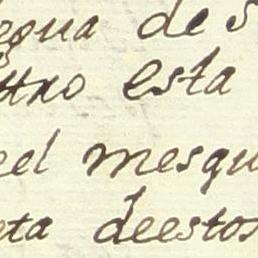 legua de S
uno esta
eel mesqu
eta deestos